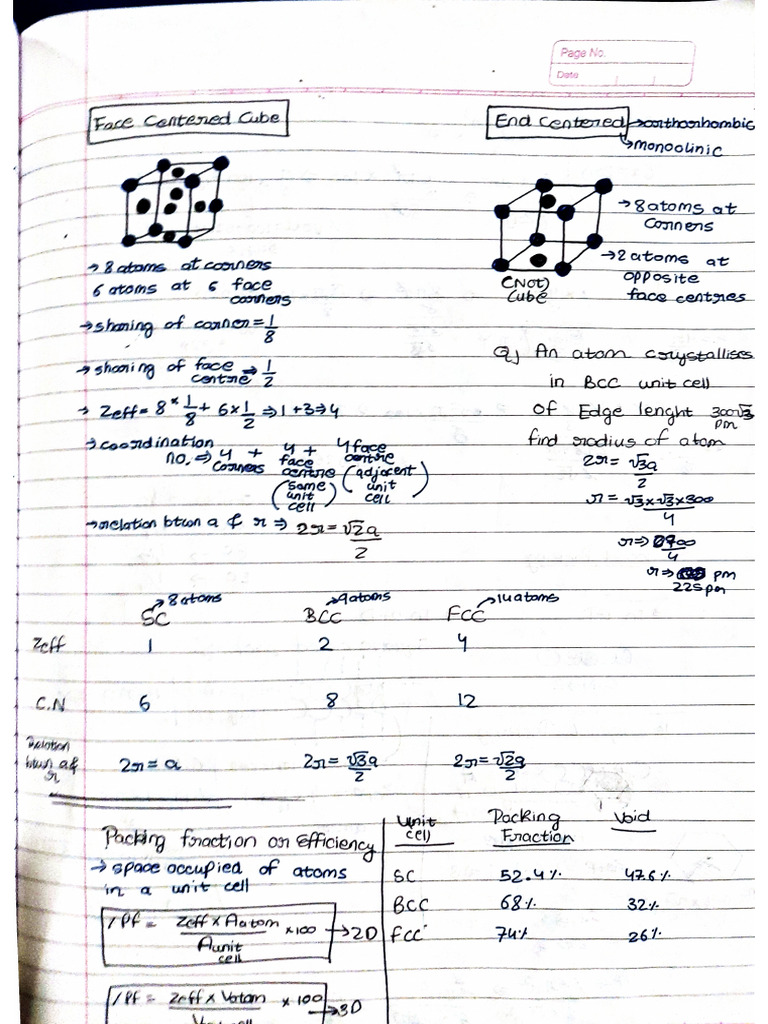 Page No.
Date
Face Centered Cube
→ 8 atoms at corners
6 atoms at 6 face corners
→ sharing of corner = 1/8
→ sharing of face centre ⇒ 1/2
→ Zeff = 8 × 1/8 + 6 × 1/2 ⇒ 1+3 ⇒ 4
→ coordination no. ⇒ 4 corners + 4 face centre (same unit cell) + 4 face centre (adjacent unit cell)
→ relation btwn a & r ⇒ 2r = √2a/2
End Centered → orthorhombic
→ monoclinic
→ 8 atoms at corners
→ 2 atoms at opposite face centres
(Not) Cube
Q) An atom crystallises
in BCC unit cell
of Edge lenght 300√3 pm
find radius of atom
2r = √3a/2
r = √3×√3×300/4
r ⇒ 2700/4
r ⇒ pm
225 pm
SC → 8 atoms BCC → 9 atoms FCC → 14 atoms
Zeff 1 2 4
C.N 6 8 12
Relation btwn a & r 2r = a 2r = √3a/2 2r = √2a/2
Packing fraction or Efficiency
→ space occupied of atoms
in a unit cell
/Pf = Zeff × Aatom / Aunit cell × 100 → 2D
/Pf = Zeff × Vatom × 100 → 3D
Unit cell Packing Fraction Void
SC 52.4% 47.6%
BCC 68% 32%
FCC 74% 26%